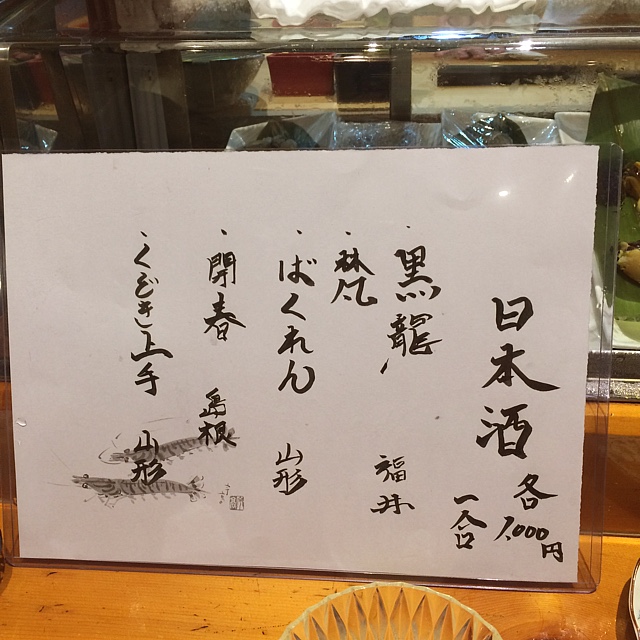 日本酒
各1,000円
一合
・黒龍 福井
・梵
・ばくれん 山形
・開春 島根
・くどき上手 山形